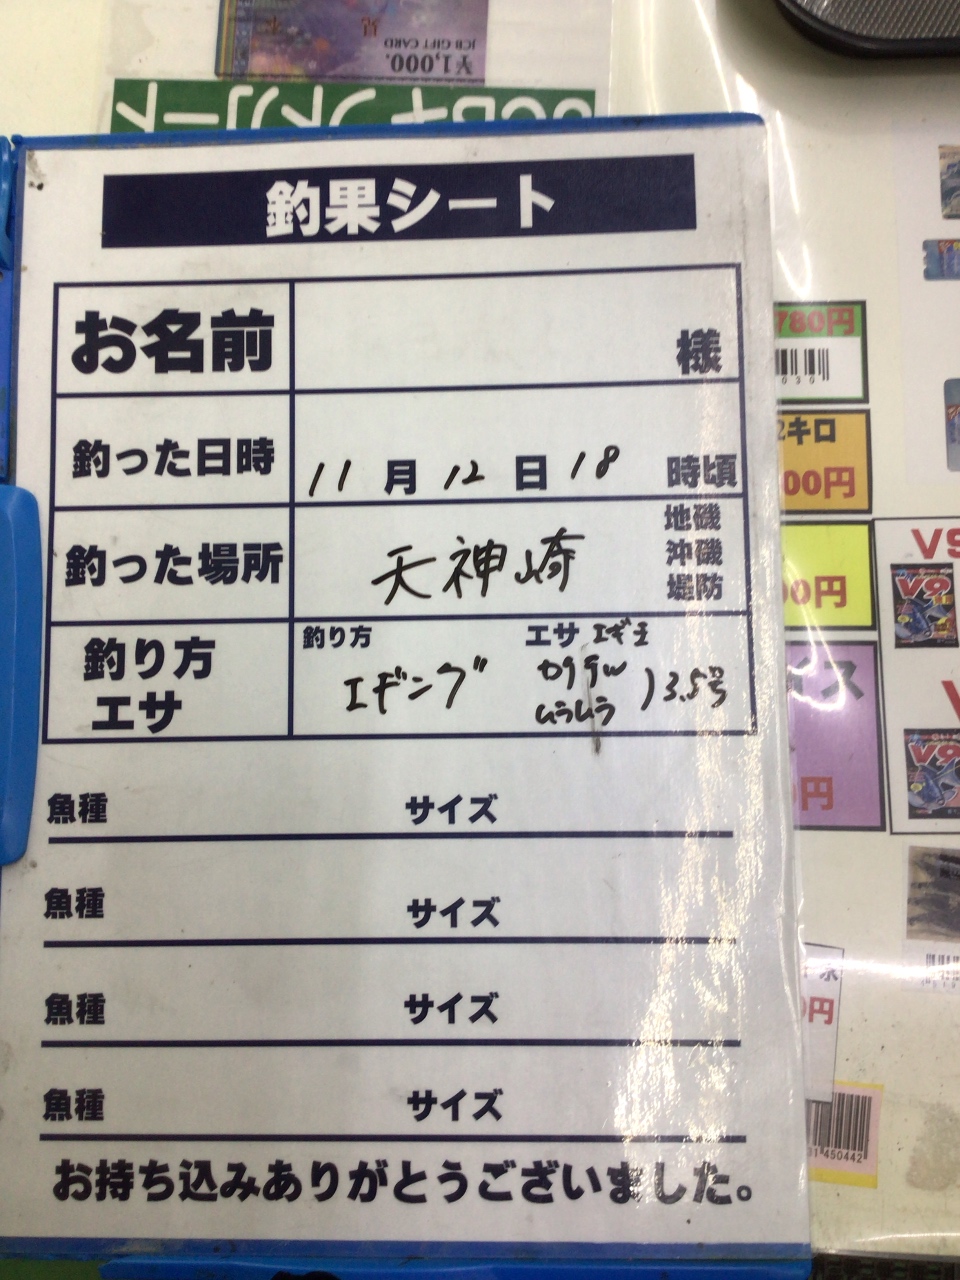 ¥1,000.
JCB GIFT CARD
JCBギフトカード
釣果シート
お名前
様
釣った日時
11月12日18時頃
釣った場所
天神崎
地磯
沖磯
堤防
釣り方
エサ
釣り方
エギング
エサ エギ王
ムラムラ
3.5号
魚種 サイズ
魚種 サイズ
魚種 サイズ
魚種 サイズ
お持ち込みありがとうございました。
780円
キロ
00円
00円
イス
円
V9
V9
V9
円
450442